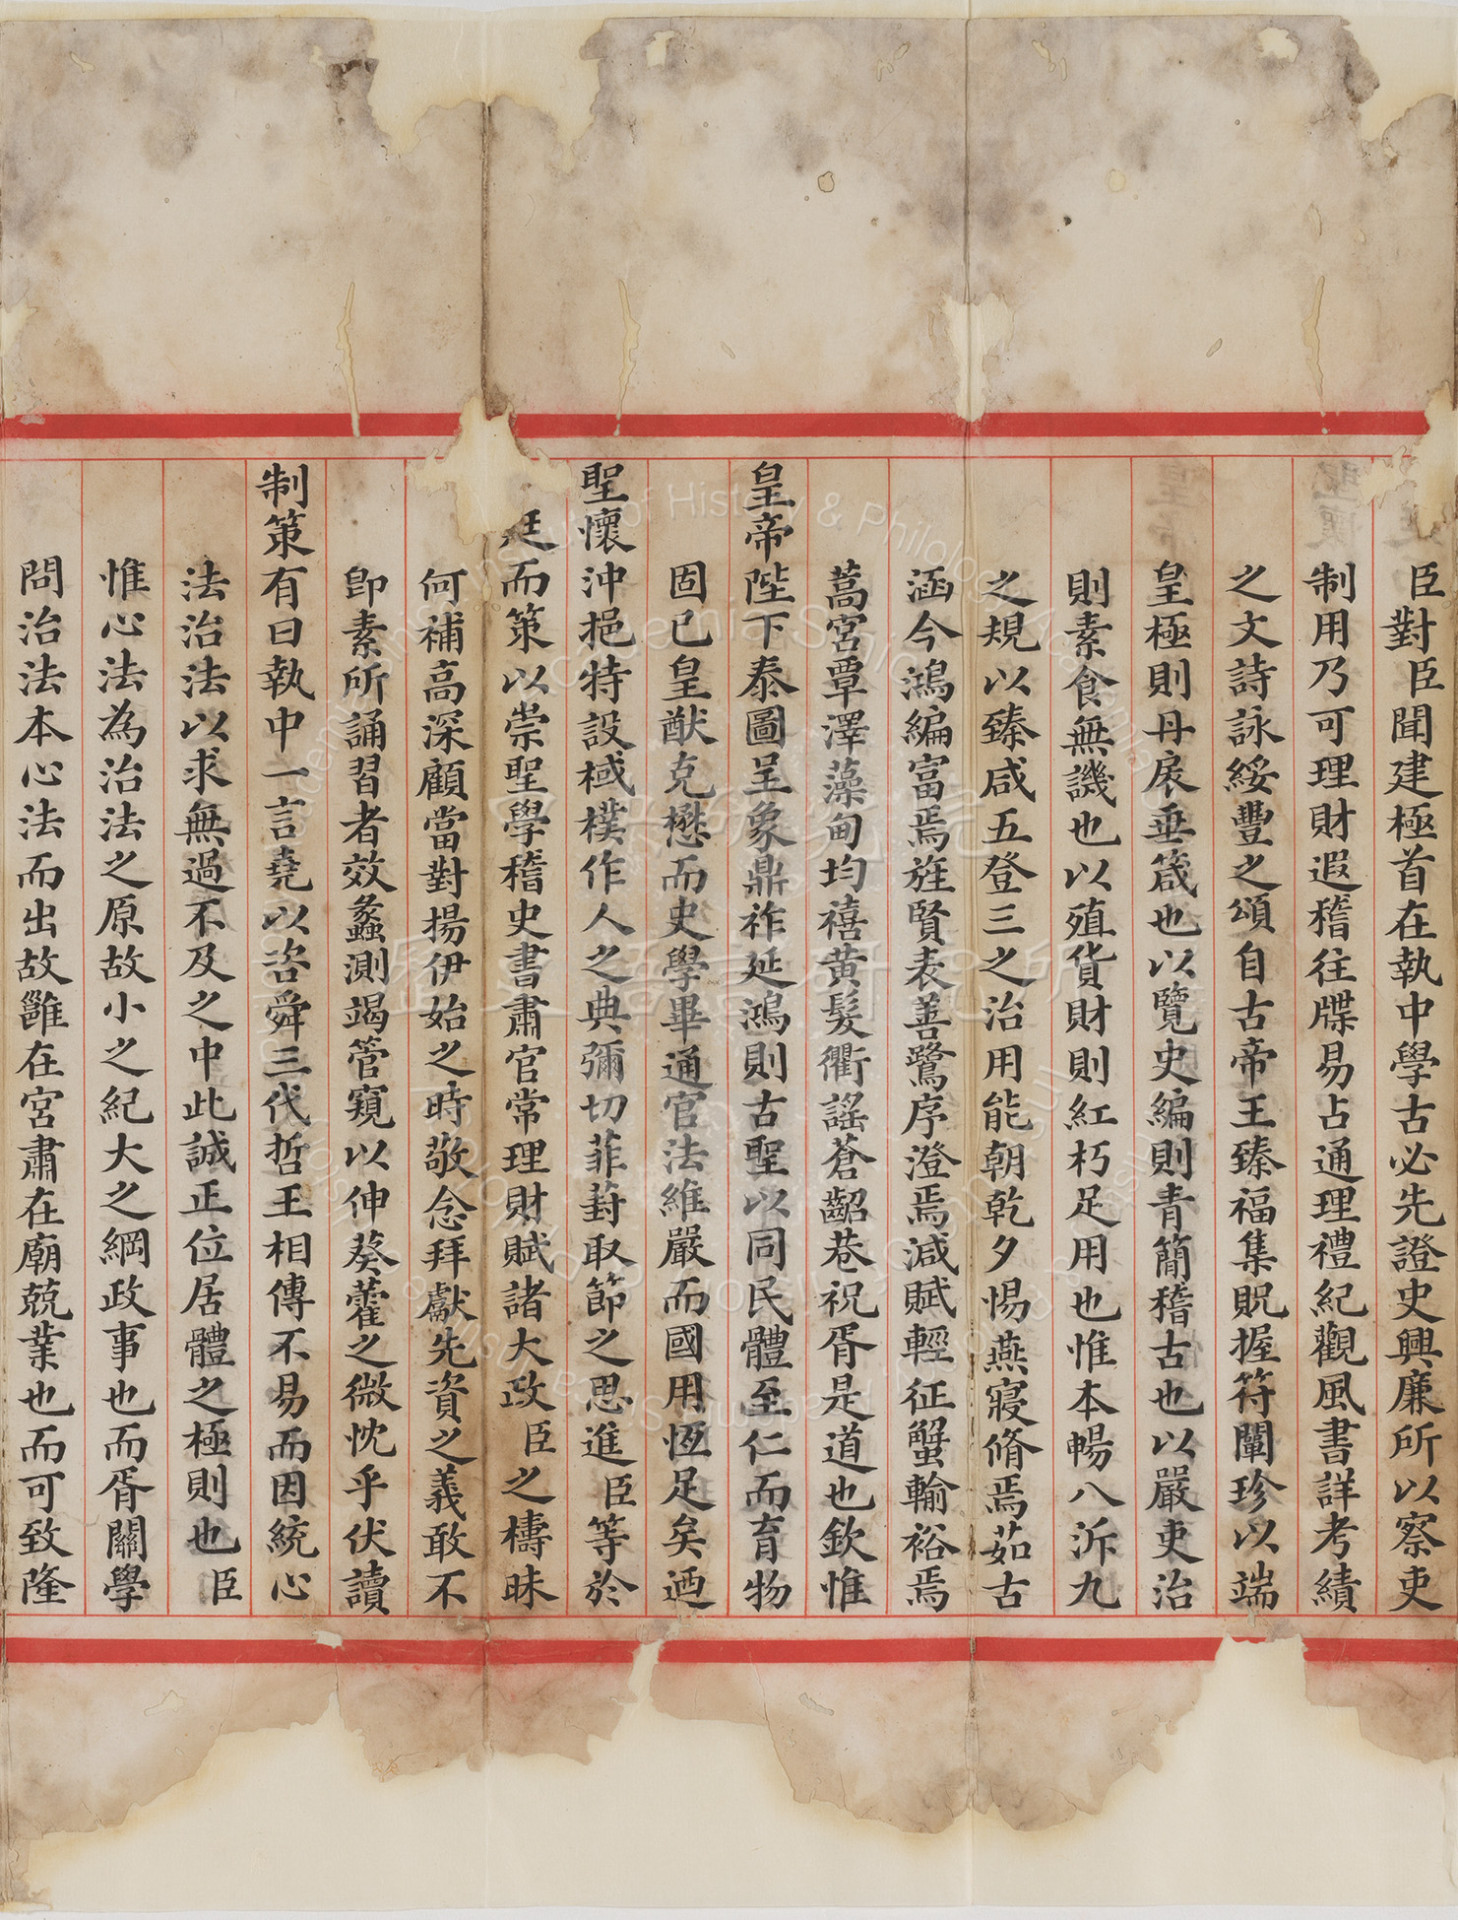 臣對臣聞建極首在執中學古必先證史興廉所以察吏
制用乃可理財遐稽往牒易占通理禮紀觀風書詳考績
之文詩詠綏豐之頌自古帝王臻福集貺握符闡珍以端
皇極則丹扆垂箴也以覽史編則青簡稽古也以嚴吏治
則素食無譏也以殖貨財則紅朽足用也惟本暢八泝九
之規以臻咸五登三之治用能朝乾夕惕燕寢脩焉茹古
涵今鴻編富焉旌賢表善鷺序澄焉減賦輕征蟹輸裕焉
蒿宮覃澤藻甸均禧黃髮衢謠蒼齠巷祝胥是道也欽惟
皇帝陛下泰圖呈象鼎祚延鴻則古聖以同民體至仁而育物
固已皇猷克懋而史學畢通官法維嚴而國用恆足矣迺
聖懷沖挹特設棫樸作人之典彌切菲葑取節之思進臣等於
廷而策以崇聖學稽史書肅官常理財賦諸大政臣之檮昧
何補高深顧當對揚伊始之時敬念拜獻先資之義敢不
即素所誦習者效蠡測竭管窺以伸葵藿之微忱乎伏讀
制策有曰執中一言堯以咨舜三代哲王相傳不易而因統心
法治法以求無過不及之中此誠正位居體之極則也臣
惟心法為治法之原故小之紀大之綱政事也而胥關學
問治法本心法而出故雝在宮肅在廟兢業也而可致隆